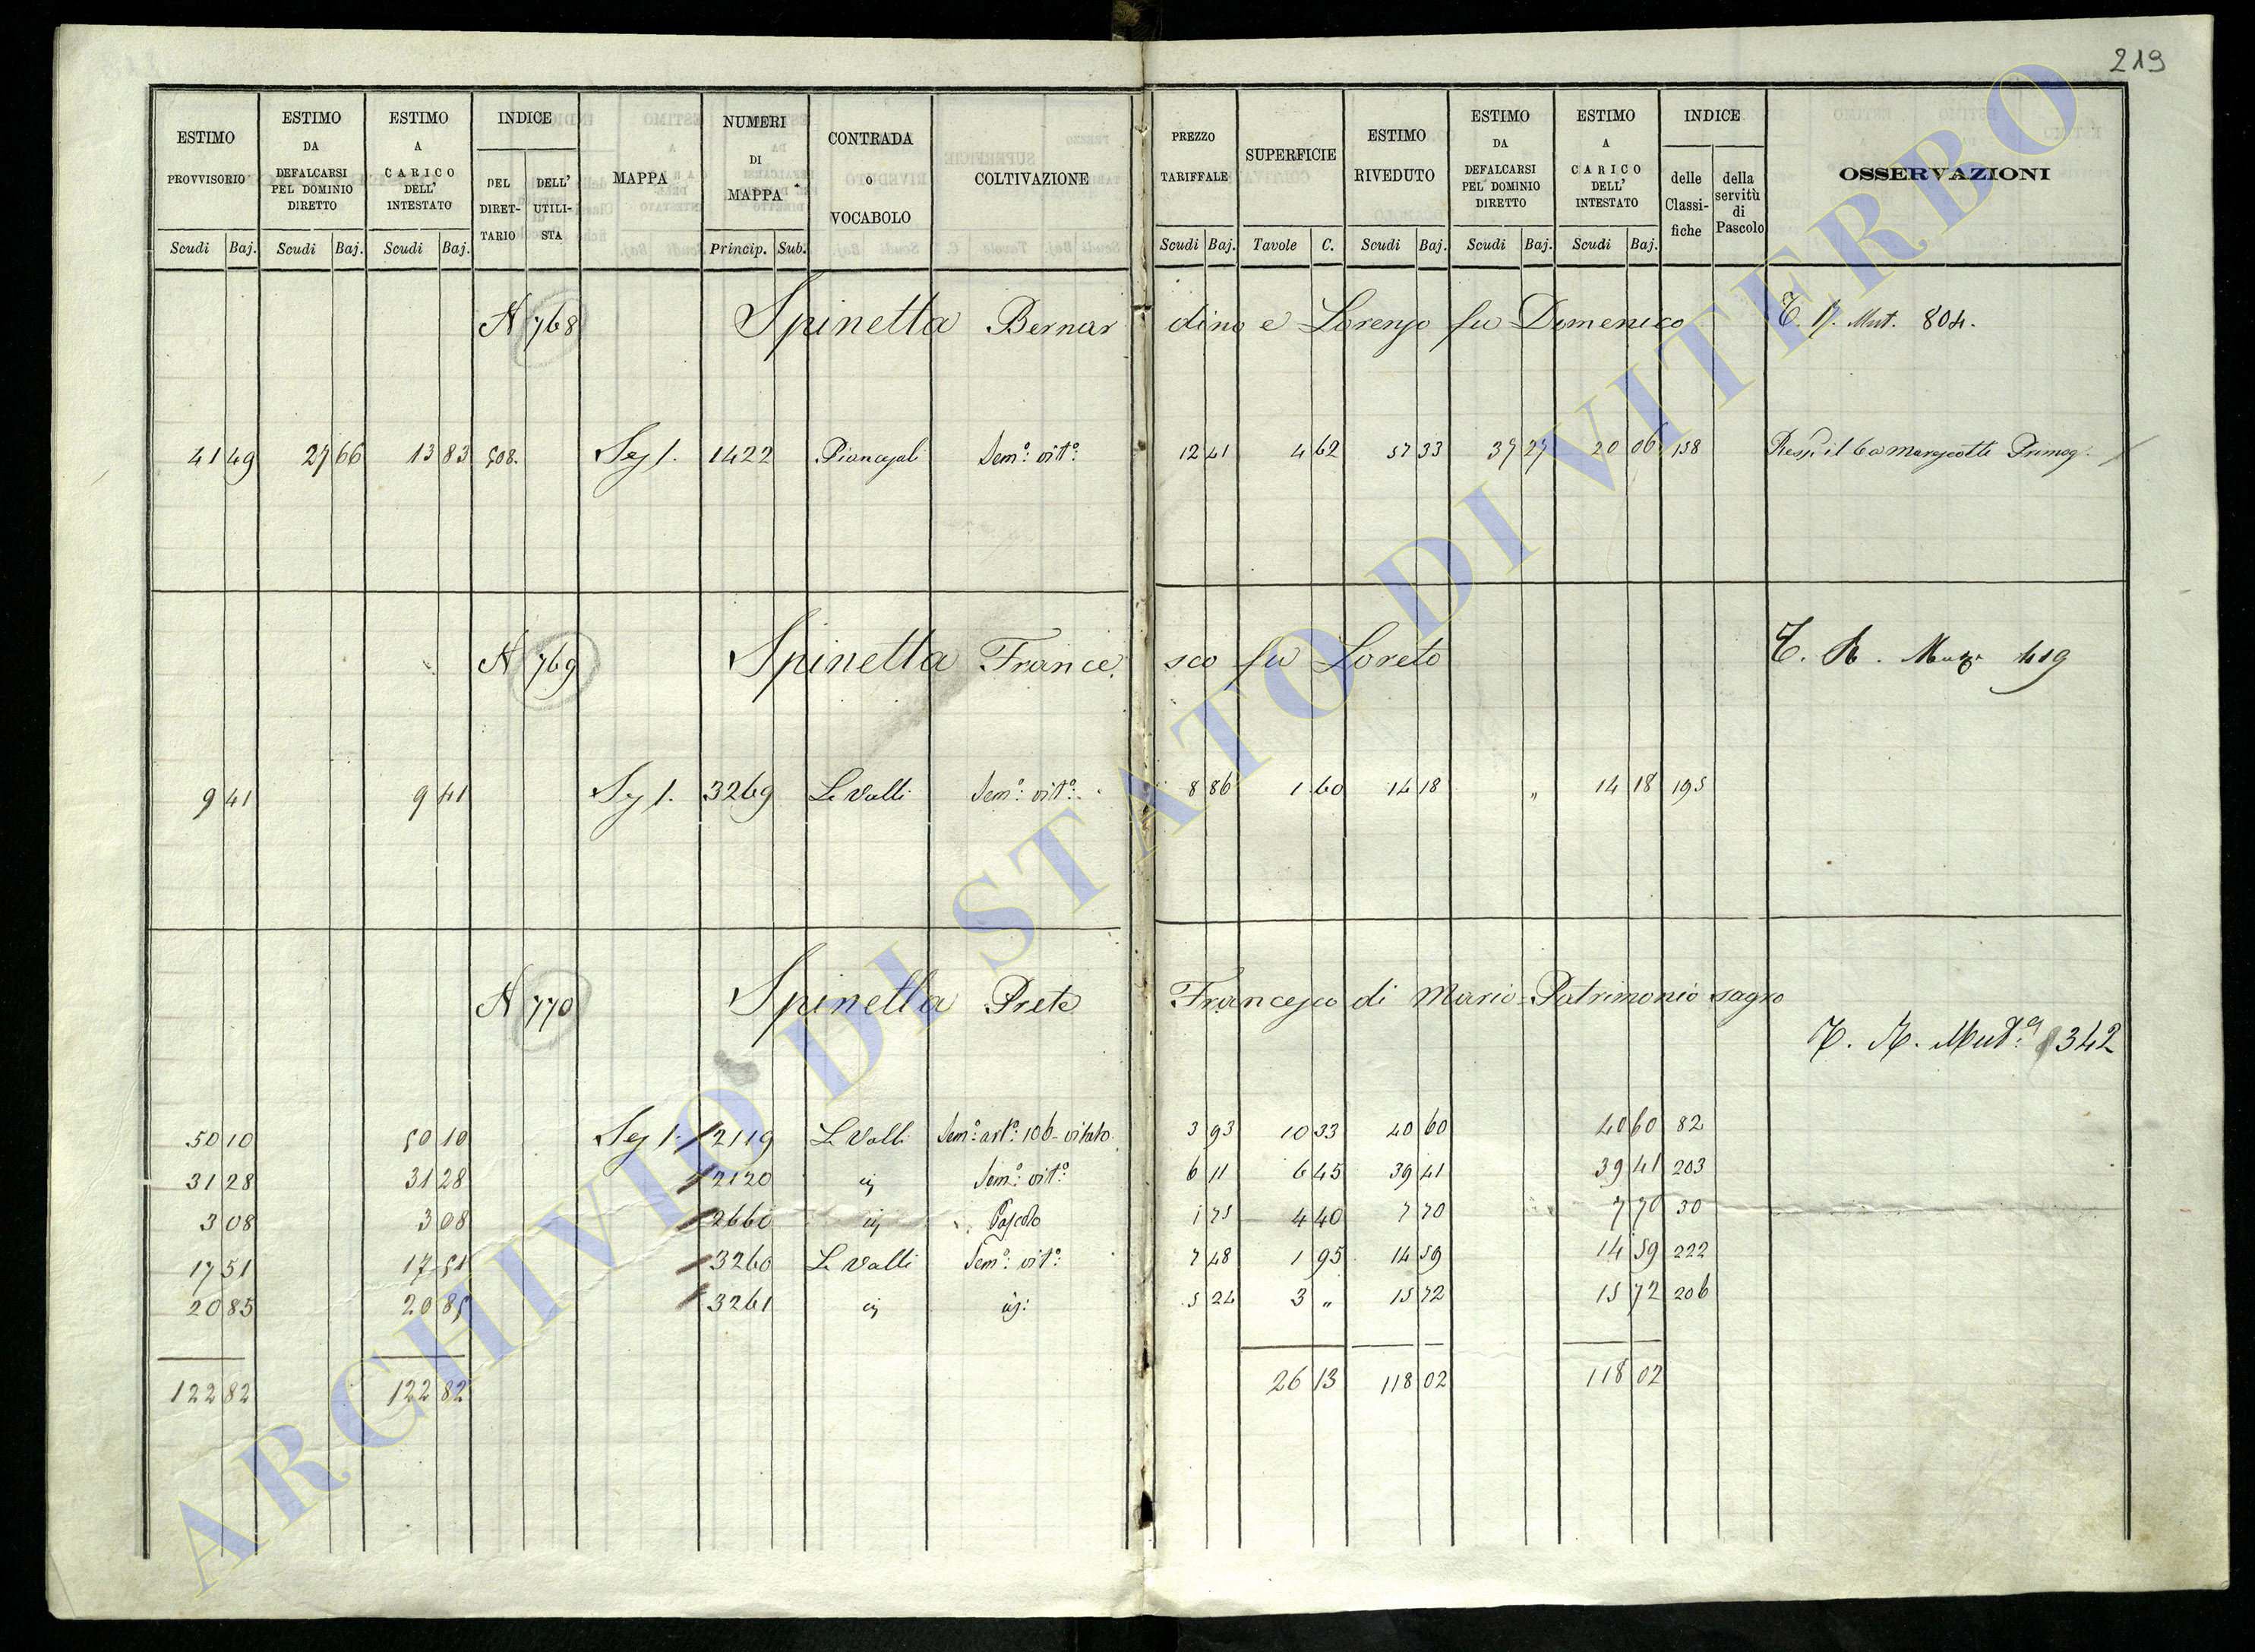 219
ESTIMO PROVVISORIO ESTIMO DA DEFALCARSI PEL DOMINIO DIRETTO ESTIMO A CARICO DELL' INTESTATO INDICE DEL DIRETTARIO DELL' UTILISTA MAPPA NUMERI DI MAPPA CONTRADA O VOCABOLO COLTIVAZIONE PREZZO TARIFFALE SUPERFICIE ESTIMO RIVEDUTO ESTIMO DA DEFALCARSI PEL DOMINIO DIRETTO ESTIMO A CARICO DELL' INTESTATO INDICE delle Classifiche della servitù di Pascolo OSSERVAZIONI
Scudi Baj. Scudi Baj. Scudi Baj. Princip. Sub. Scudi Baj. Tavole C. Scudi Baj. Scudi Baj. Scudi Baj.
N 768 Spinetta Bernardino e Lorenzo fu Domenico Mut. 804.
41 49 27 66 13 83 508. Sez 1. 1422 Sem:° vit:° 12 41 4 62 57 33 37 27 20 06 158
N 769 Spinetta Francesco fu Loreto 419
9 41 9 41 Sez 1. 3269 Le Valli Sem:° vit:° 8 86 1 60 14 18 „ 14 18 195
N 770 Spinetta Prete Francesco di Mario - Patrimonio sagro
Mut:ª 342
50 10 50 10 Sez 1. 2119 Le Valli Sem:° art:° 106 - vitato 3 93 10 33 40 60 40 60 82
31 28 31 28 2120 Sem:° vit:° 6 11 6 45 39 41 39 41 203
3 08 3 08 2660 Pascolo 1 75 4 40 7 70 7 70 30
17 51 17 51 3260 Le Valli Sem:° vit:° 7 48 1 95 14 59 14 59 222
20 85 20 85 3261 5 24 3 „ 15 72 15 72 206
122 82 122 82 26 13 118 02 118 02
ARCHIVIO DI STATO DI VITERBO